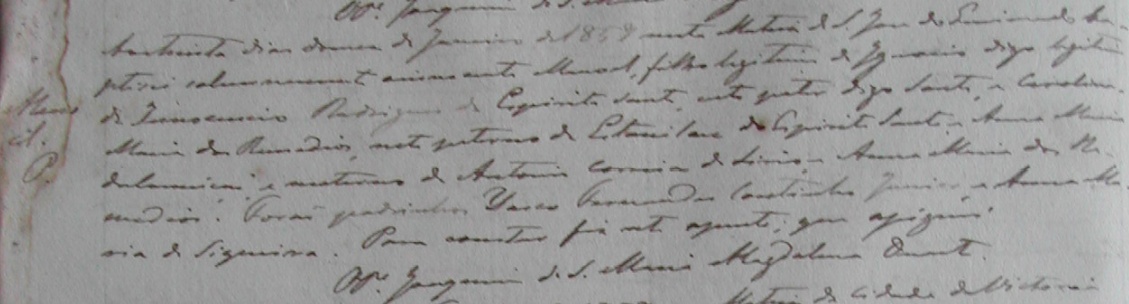 Vr.º Joaquim de S. Maria
Aos trinta dias do mez de Janeiro de 1858 nesta Matriz de S. Joze do Queimado ba-
ptisei solemnemente ao innocente Manoel, filho legitimo de Ignacio digo legitimo
de Innocencio Rodrigues do Espirito Santo, neto pater digo Santo, e Carolina
Maria dos Remedios, neto paterno de Estanislau do Espirito Santo e Anna Maria
e materno de Antonio Correia de Lirio e Anna Maria dos Re-
medios. Foraõ padrinhos Vasco Fernandes Coutinho Junior e Anna Ma-
ria de Siqueira. Para constar fiz este assento, que assignei
Vr.º Joaquim de S. Maria Magdalena Duarte.
Matriz da Cidade da Victoria
Mano
el.
P.